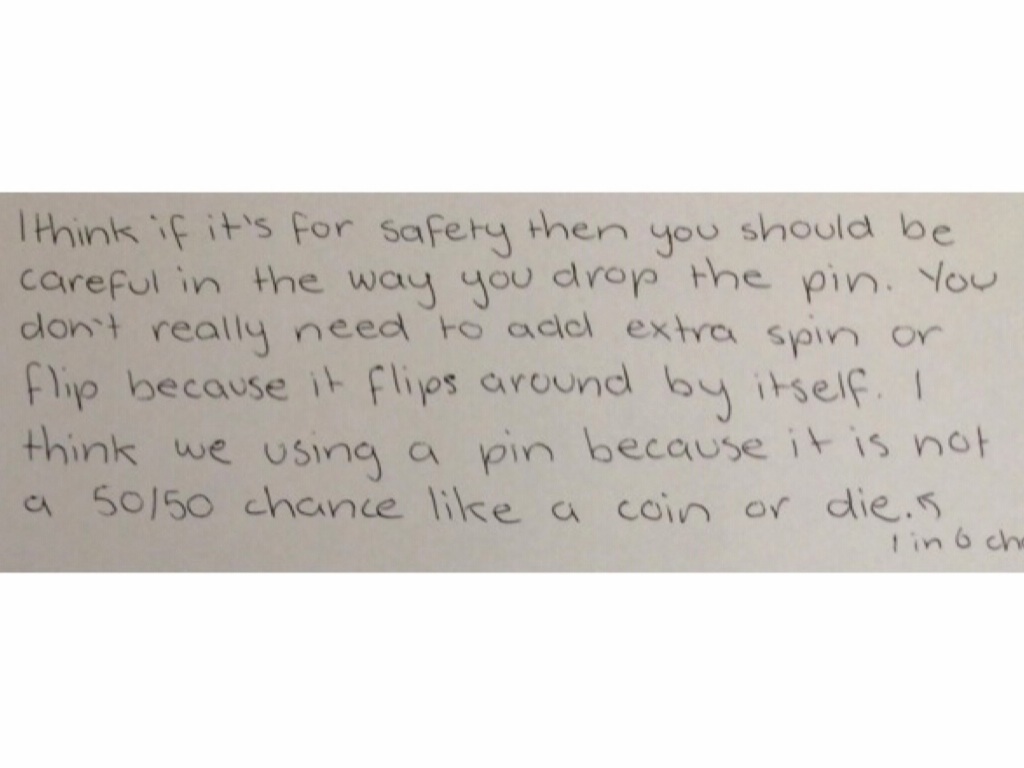 I think if it's for safety then you should be
careful in the way you drop the pin. You
don't really need to add extra spin or
flip because it flips around by itself. I
think we using a pin because it is not
a 50/50 chance like a coin or die.
1 in 6 ch